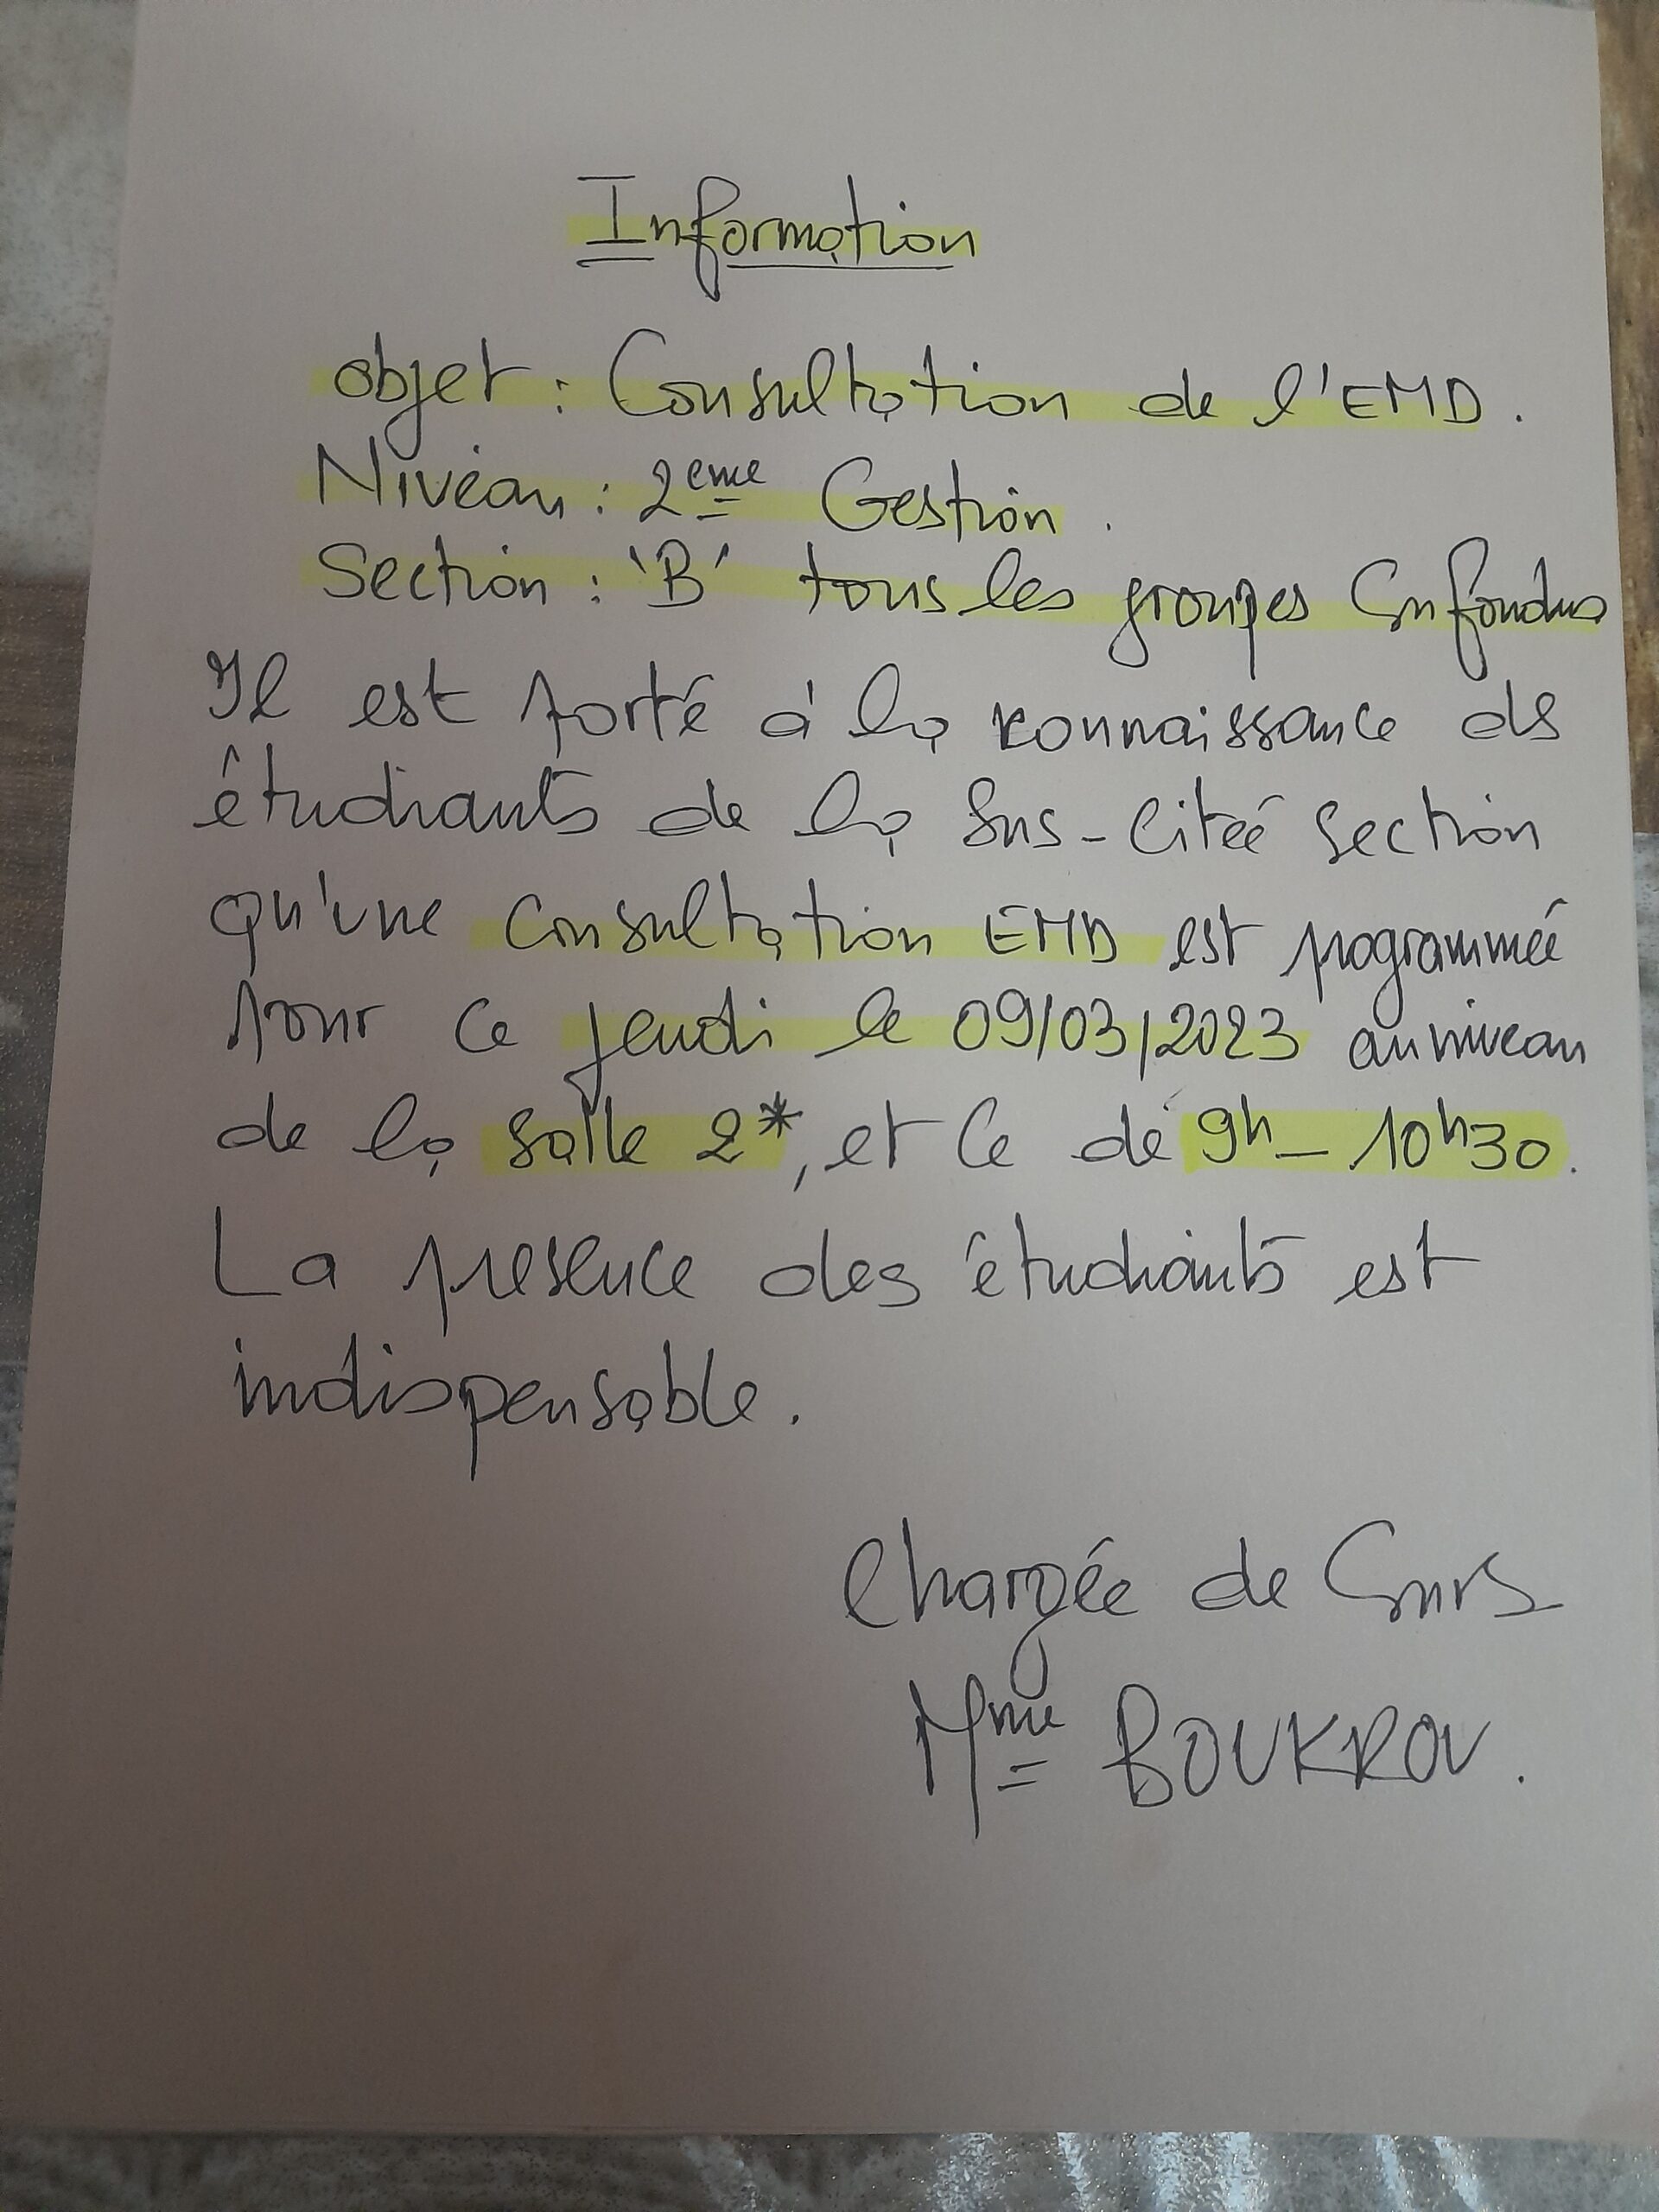 Information
objet : Consultation de l'EMD.
Niveau : 2eme Gestion.
Section : 'B' tous les groupes Confondus
Il est porté à la connaissance des
étudiants de la sus-citeé section
qu'une consultation EMD est programmée
pour ce jeudi le 09/03/2023 au niveau
de la salle 2*, et ce dé 9h_10h30.
La presence des étudiants est
indispensable.
Chargée de Cours
Mme BOUKROU.